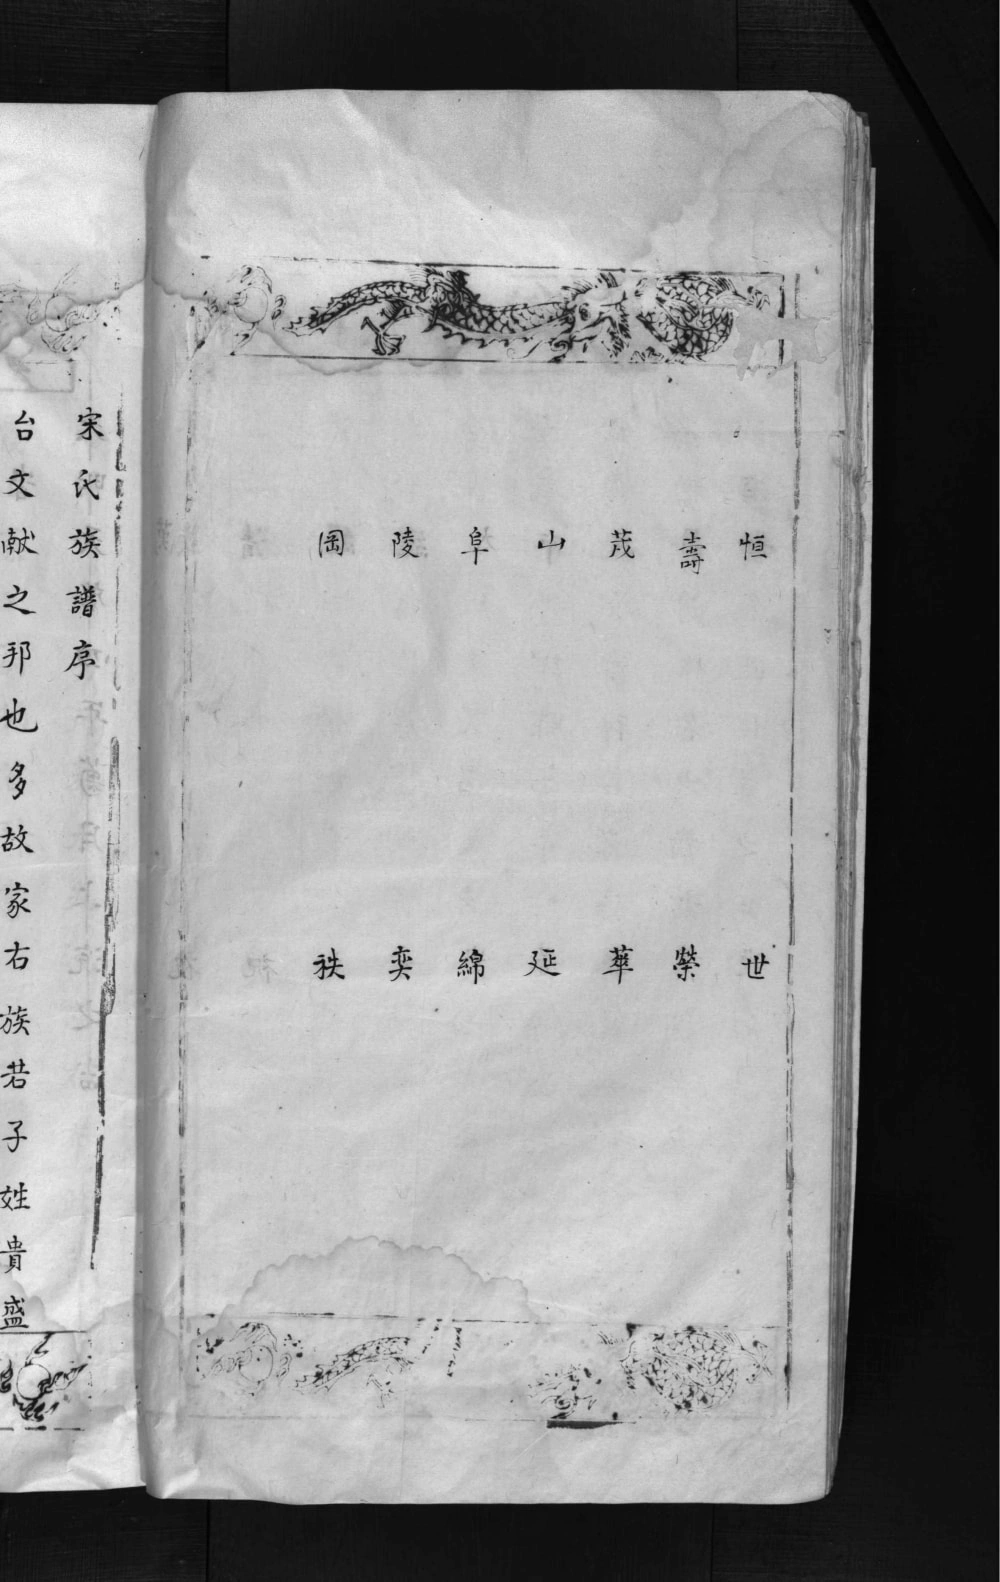 恒壽茂山阜陵岡
世榮華延綿奕秩
宋氏族譜序
台文献之邦也多故家右族若子姓貴盛